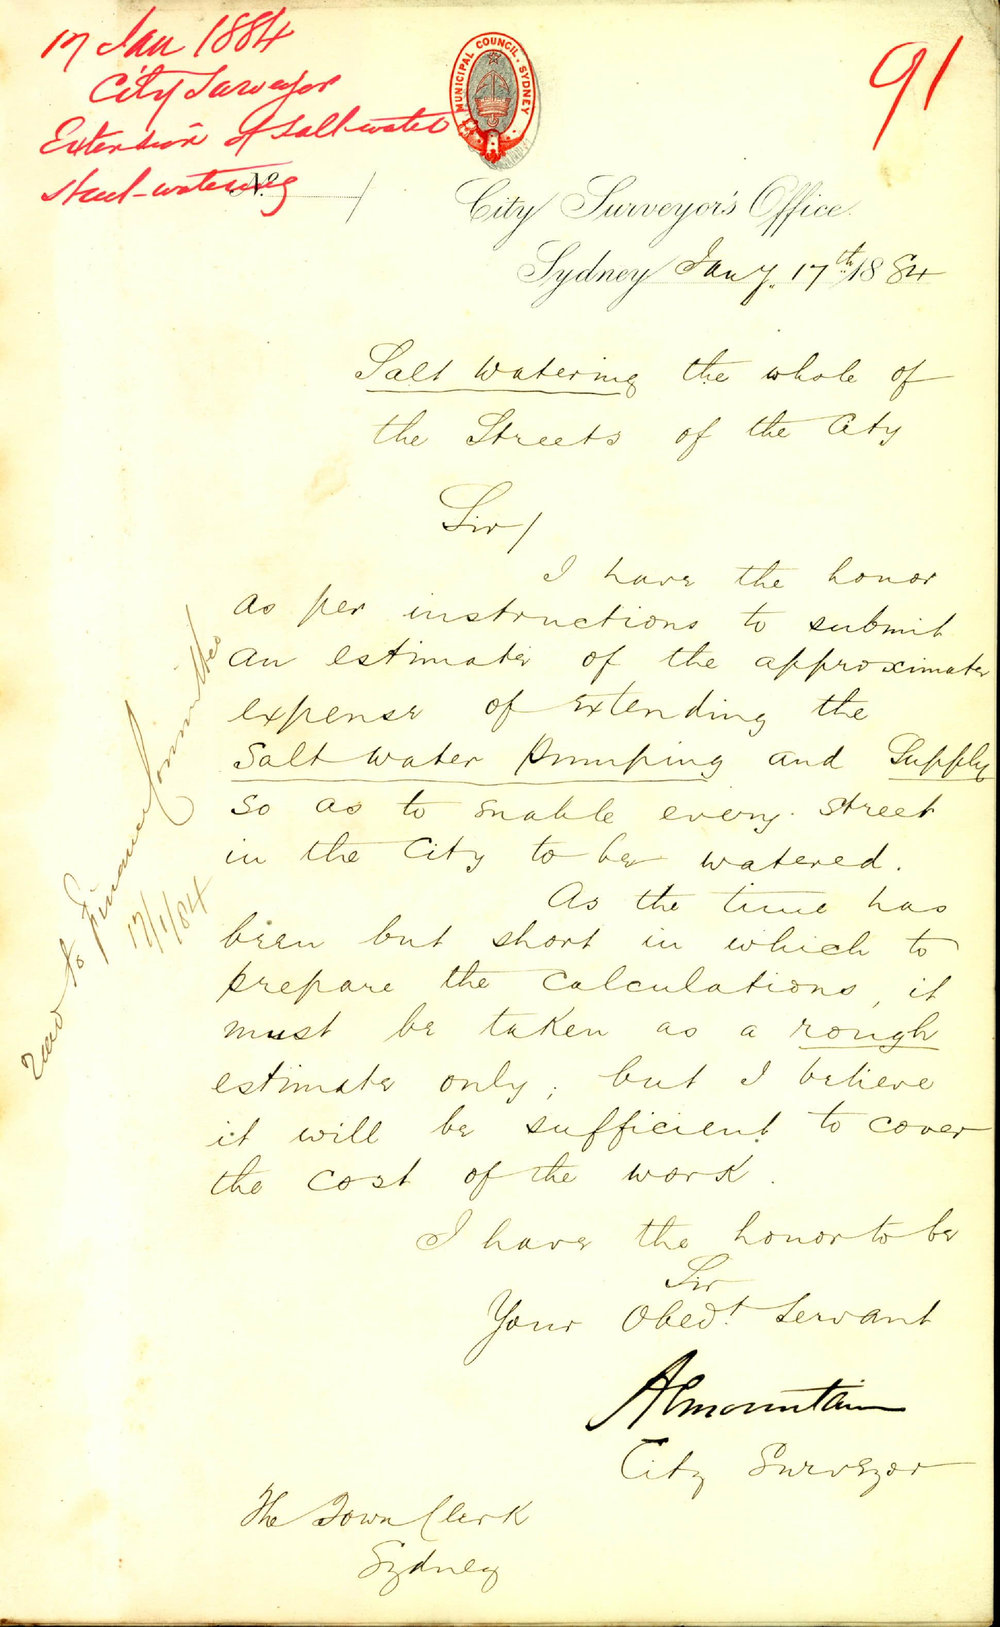 17 Jan 1884
City Surveyor
Extension of Salt-water
Street-watering
91
MUNICIPAL COUNCIL. SYDNEY
No /
City Surveyor's Office.
Sydney Jany. 17th 1884
Salt Watering the whole of
the Streets of the City
Sir/
I have the honor
as per instructions to submit
an estimate of the approximate
expense of extending the
Salt Water Pumping and Supply
so as to enable every street
in the City to be watered.
As the time has
been but short in which to
prepare the calculations, it
must be taken as a rough
estimate only; but I believe
it will be sufficient to cover
the cost of the work.
I have the honor to be
Sir
Your Obedt. Servant
City Surveyor
The Town Clerk
Sydney
to Finance Committee
17/1/84